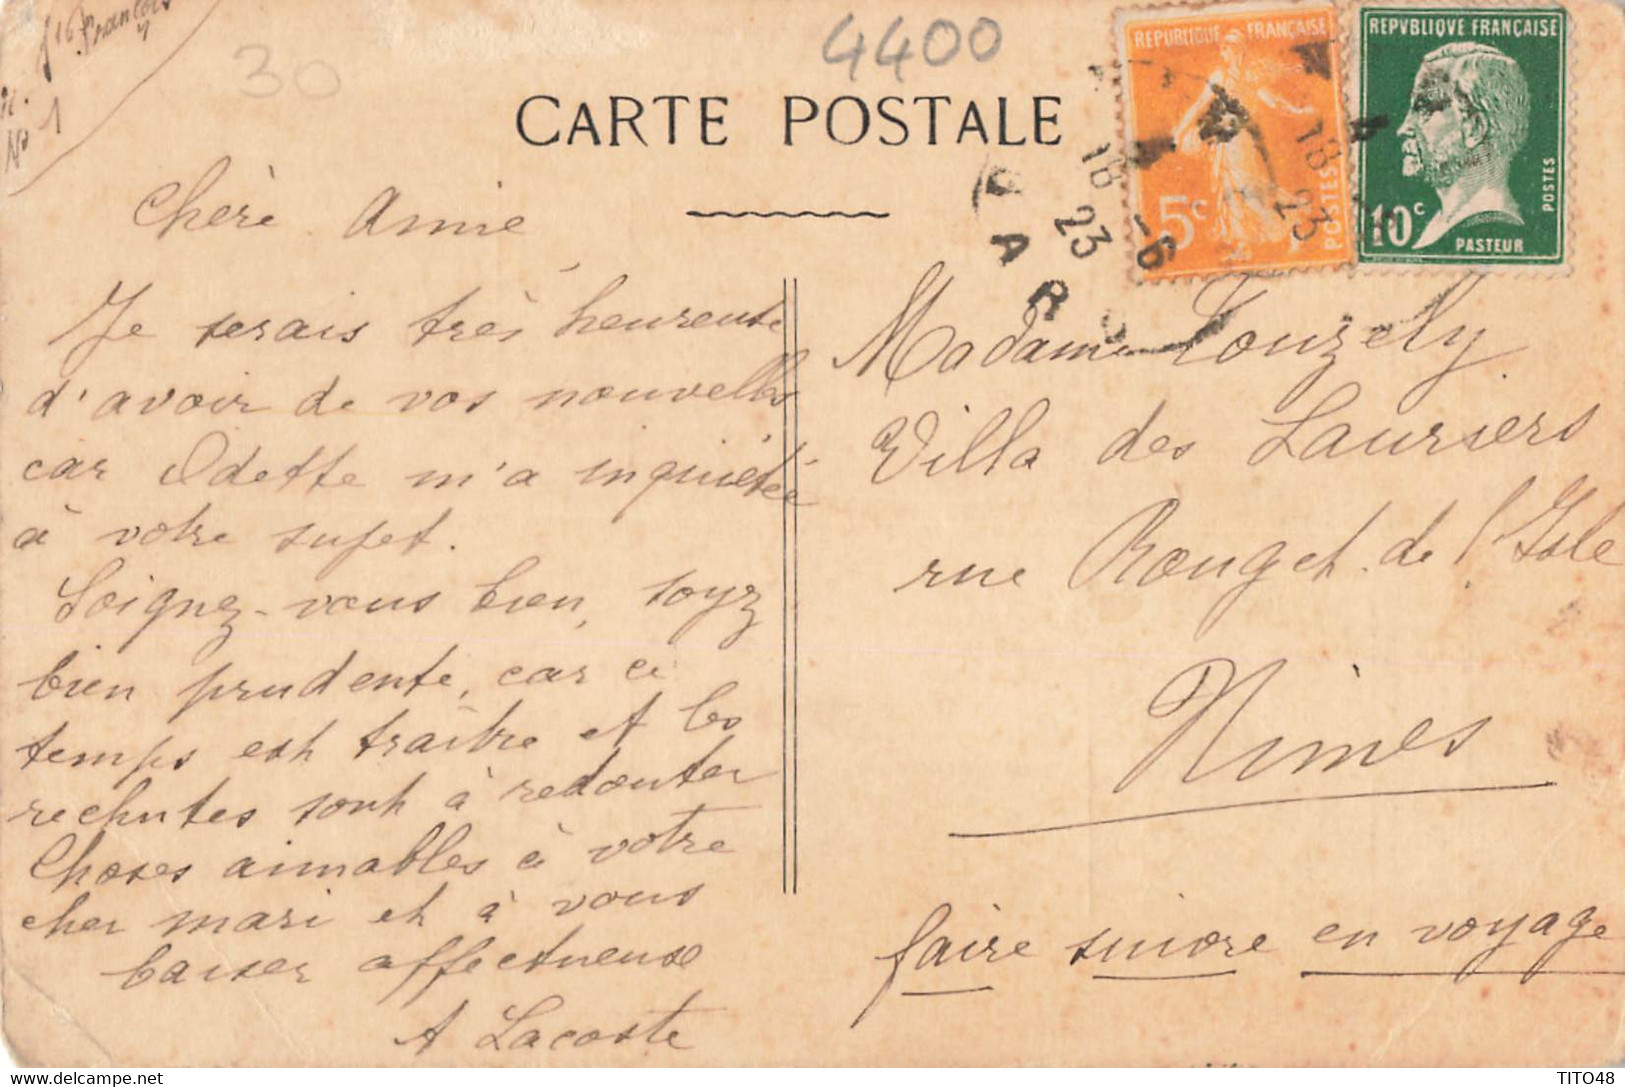 Ste François
No 1
30
4400
CARTE POSTALE
REPUBLIQUE FRANÇAISE
5c
POSTES
REPVBLIQVE FRANÇAISE
10c
POSTES
PASTEUR
18
23
-6
18
23
GARD
Chère Annie
Je serais très heureuse
d'avoir de vos nouvelles
car Odette m'a inquiétée
à votre sujet.
Soignez-vous bien, soyz
bien prudente, car ce
temps est traître et les
rechutes sont à redouter
Choses aimables à votre
cher mari et à vous
baiser affectueuse
A Lacoste
Madame Touzely
Villa des Lauriers
rue Rouget de l'Isle
Nimes
faire suivre en voyage
TITO48